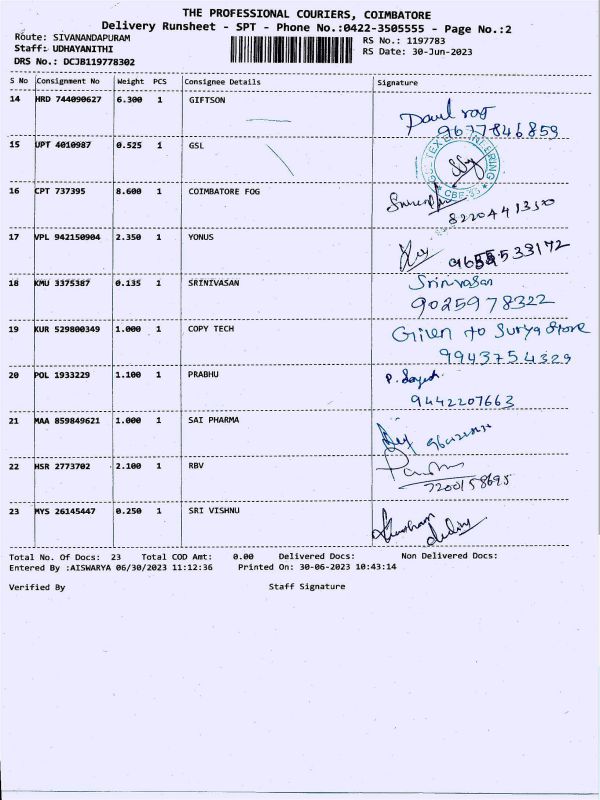 THE PROFESSIONAL COURIERS, COIMBATORE
Delivery Runsheet - SPT - Phone No.:0422-3505555 - Page No.:2
Route: SIVANANDAPURAM RS No.: 1197783
Staff: UDHAYANITHI RS Date: 30-Jun-2023
DRS No.: DCJB119778302
S No Consignment No Weight PCS Consignee Details Signature
14 HRD 744090627 6.300 1 GIFTSON
Paul raj
9677846859
15 UPT 4010987 0.525 1 GSL
CBE-35
16 CPT 737395 8.600 1 COIMBATORE FOG
8220441350
17 VPL 942150904 2.350 1 YONUS
533172
18 KMU 3375387 0.135 1 SRINIVASAN
Srinivasan
9025978322
19 KUR 529800349 1.000 1 COPY TECH
Given to Surya Store
9943754329
20 POL 1933229 1.100 1 PRABHU
9442207663
21 MAA 859849621 1.000 1 SAI PHARMA
22 HSR 2773702 2.100 1 RBV
7200158695
23 MYS 26145447 0.250 1 SRI VISHNU
Total No. Of Docs: 23 Total COD Amt: 0.00 Delivered Docs: Non Delivered Docs:
Entered By :AISWARYA 06/30/2023 11:12:36 Printed On: 30-06-2023 10:43:14
Verified By Staff Signature